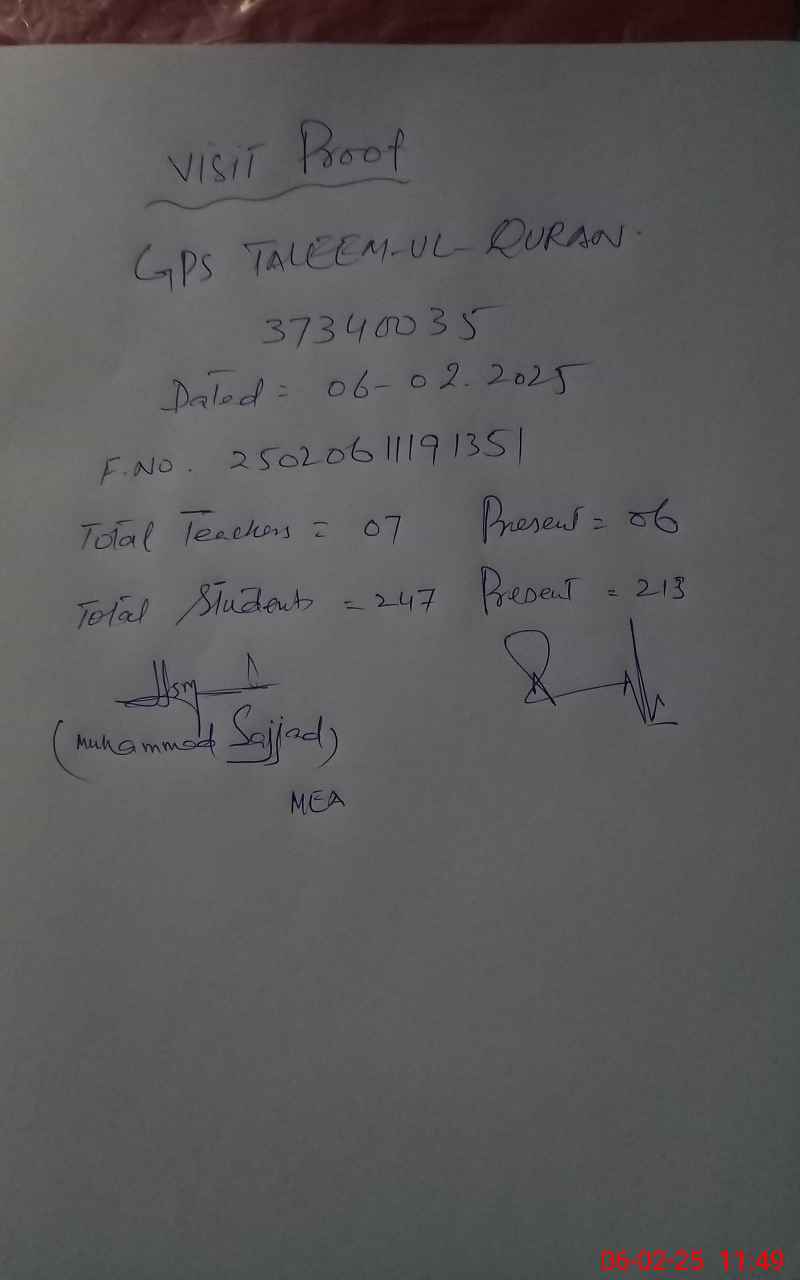 VISIT Proof
GPS TALEEM-UL-QURAN.
37340035
Dated = 06-02.2025
F.NO. 25020611191351
Total Teachers = 07 Present = 06
Total Students = 247 Present = 213
(Muhammad Sajjad)
MEA
06-02-25 11:49